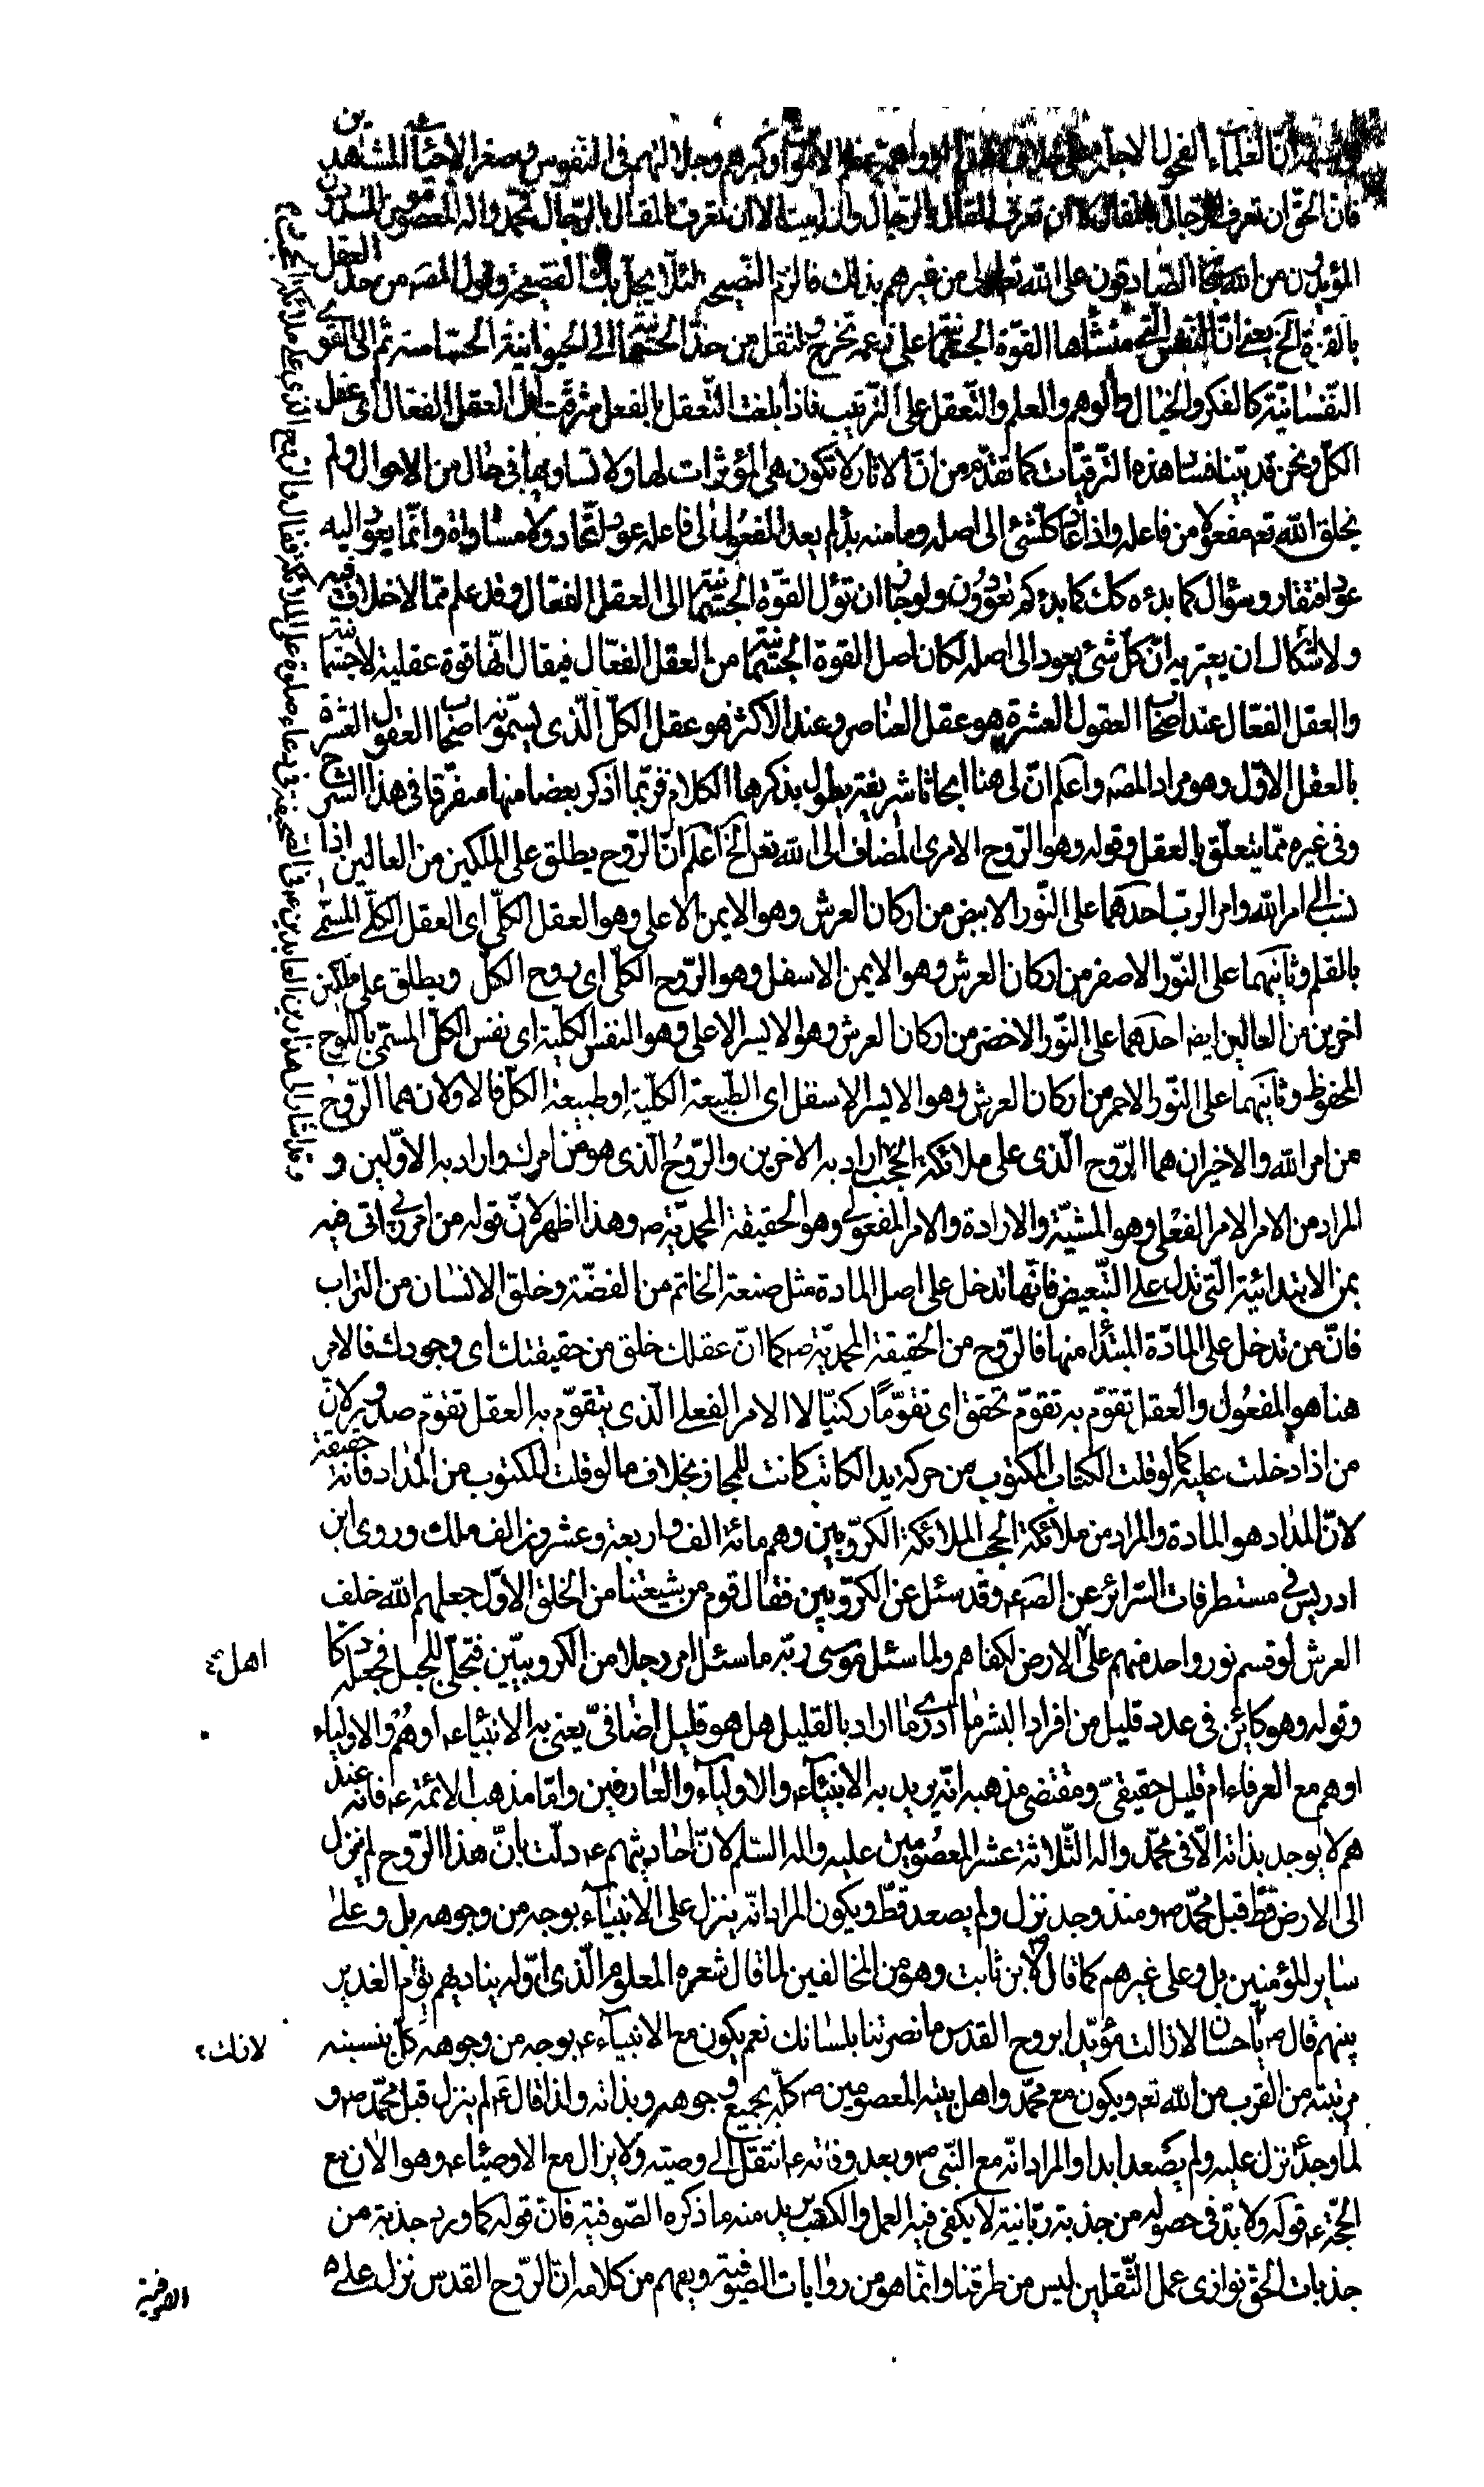 العلماء الفحول الاجلة على خلاف الاموات وكبرهم وجلالتهم فى النفوس وصغر الاحياء المشاهدين
فان الحق ان تعرف الرجال بالمقال لا ان تعرف المقال بالرجال وان ابيت الا ان تعرف المقال بالرجال فمحمد واله المعصومين المسددين
المؤيدين من الله تعالى الصادقون على الله تعالى اولى من غيرهم بذلك فالزم النصيحة لئلا يحل بك الفضيحة وقول المصه من حد العقل
بالقوة الخ يعنى ان النفس التى منشأها القوة الجسمانية على زعمه تخرج وتنقل من حد الجسمانية الى الحيوانية الحساسة ثم الى القوى
النفسانية كالفكر والخيال والوهم والعلم والتعقل على الترتيب فاذا بلغت التعقل بالفعل ترقت الى العقل الفعال اى عقل
الكل ونحن قد بينا فساد هذه الترقيات كما تقدم من ان الاثار لا تكون هى المؤثرات لها ولا تساويها فى حال من الاحوال ولم
يخلق الله تعه مفعولا من فاعله واذا عاد كل شئ الى اصله وما منه بدئ لم يعد المفعول الى فاعله عود اتحاد ولا مساواة وانما يعود اليه
عود افتقار وسؤال كما بدءه كك كما بدءكم تعودون ولو جاز ان تؤل القوة الجسمانية الى العقل الفعال وقد علم مما لا خلاف فيه
ولا اشكال ان يعتريه ان كل شئ يعود الى اصله لكان اصل القوة الجسمانية من العقل الفعال فيقال انها قوة عقلية لا جسمانية
والعقل الفعال عند اصحاب العقول العشرة هو عقل العناصر وعند الاكثر هو عقل الكل الذى يسمونه اصحاب العقول العشرة
بالعقل الاول وهو مراد المصه واعلم ان لى هنا ابحاثا شريفة يطول بذكرها الكلام فربما اذكر بعضا منها متفرقا فى هذا الشرح
وفى غيره مما يتعلق بالعقل وقوله وهو الروح الامرى المضاف الى الله تعه الخ اعلم ان الروح يطلق على الملكين من العالين اذا
نسب الى امر الله وامر الرب احدهما على النور الابيض من اركان العرش وهو الايمن الاعلى وهو العقل الكلى اى العقل الكلى المسمى
بالقلم وثانيهما على النور الاصفر من اركان العرش وهو الايمن الاسفل وهو الروح الكلى اى روح الكل ويطلق على ملكين
اخرين من العالين ايضه احدهما على النور الاخضر من اركان العرش وهو الايسر الاعلى وهو النفس الكلية اى نفس الكل المسمى باللوح
المحفوظ وثانيهما على النور الاحمر من اركان العرش وهو الايسر الاسفل اى الطبيعة الكلية او طبيعة الكل فالاولان هما الروح
من امر الله والاخيران هما الروح الذى على ملائكة الحجب اراد به الاخرين والروح الذى هو من امرك واراد به الاولين و
المراد من الامر الامر الفعلى وهو المشية والارادة والامر المفعولى وهو الحقيقة المحمدية صه وهذا اظهر لان قوله من امر ربى اتى فيه
بمن الابتدائية التى تدل على التبعيض فانها تدخل على اصل المادة مثل صنعة الخاتم من الفضة وخلق الانسان من التراب
فان من تدخل على المادة المبتدأ منها فالروح من الحقيقة المحمدية صه كما ان عقلك خلق من حقيقتك اى وجودك فالامر
هنا هو المفعول والعقل تقوم به تقوم تحقق اى تقوما ركنيا لا الامر الفعلى الذى يتقوم به العقل تقوم صدور لان
من اذا دخلت عليه كما لو قلت الكتاب المكتوب من حركة يد الكاتب كانت للمجاز بخلاف ما لو قلت المكتوب من المداد فانه حقيقة
لان المداد هو المادة والمراد من ملائكة الحجب الملائكة الكروبيين وهم مائة الف واربعة وعشرون الف ملك وروى ابن
ادريس فى مستطرفات السرائر عن الصه عه وقد سئل عن الكروبيين فقال قوم من شيعتنا من الخلق الاول جعلهم الله خلف
العرش لو قسم نور واحد منهم على الارض لكفاهم ولما سئل موسى ربه ما سئل امر رجلا من الكروبيين فتجلى للجبل فجعله دكا
اهل
وقوله وهو كائن فى عدد قليل من افراد البشر ما ادرى ما اراد بالقليل هل هو قليل اضافى يعنى به الانبياء عه او هم والاولياء
او هم مع العرفاء ام قليل حقيقى ومقتضى مذهبه انه يريد به الانبياء والاولياء والعارفين واما مذهب الائمة عه فانه عند
هم لا يوجد بذاته الا فى محمد واله الثلاثة عشر المعصومين عليه واله السلم لان احاديثهم عه دلت بان هذا الروح لم ينزل
الى الارض قط قبل محمد صه ومنذ وجد نزل ولم يصعد قط ويكون المراد انه ينزل على الانبياء بوجه من وجوهه بل وعلى
ساير المؤمنين بل وعلى غيرهم كما قال لابن ثابت وهو من المخالفين لما قال شعره المعلوم الذى اوله يناديهم يوم الغدير
نبيهم قال صه يا حسان لازالت مؤيدا بروح القدس ما نصرتنا بلسانك نعم يكون مع الانبياء عه بوجه من وجوهه كل بنسبة
لانك
مرتبته من القرب من الله تعه ويكون مع محمد واهل بيته المعصومين صه كله بجميع وجوهه وبذاته ولذا قال عه لم ينزل قبل محمد صه و
لما وجد نزل عليه ولم يصعد ابدا والمراد انه مع النبى صه وبعد وفاته عه انتقل الى وصيه ولا يزال مع الاوصياء عه وهو الان مع
الحجة عه قوله ولا بد فى حصوله من جذبة ربانية لا يكفى فيه العمل والكسب يريد منه ما ذكره الصوفية فان قوله كما ورد جذبة من
جذبات الحق توازى عمل الثقلين ليس من طرقنا وانما هو من روايات الصوفية ويفهم من كلامه ان الروح القدس نزل على
الصوفية
وقد اشار الى هذا زين العابدين عه فى الصحيفة فى دعاء صلوة على الملائكة فقال والروح الذى على ملائكة الحجب